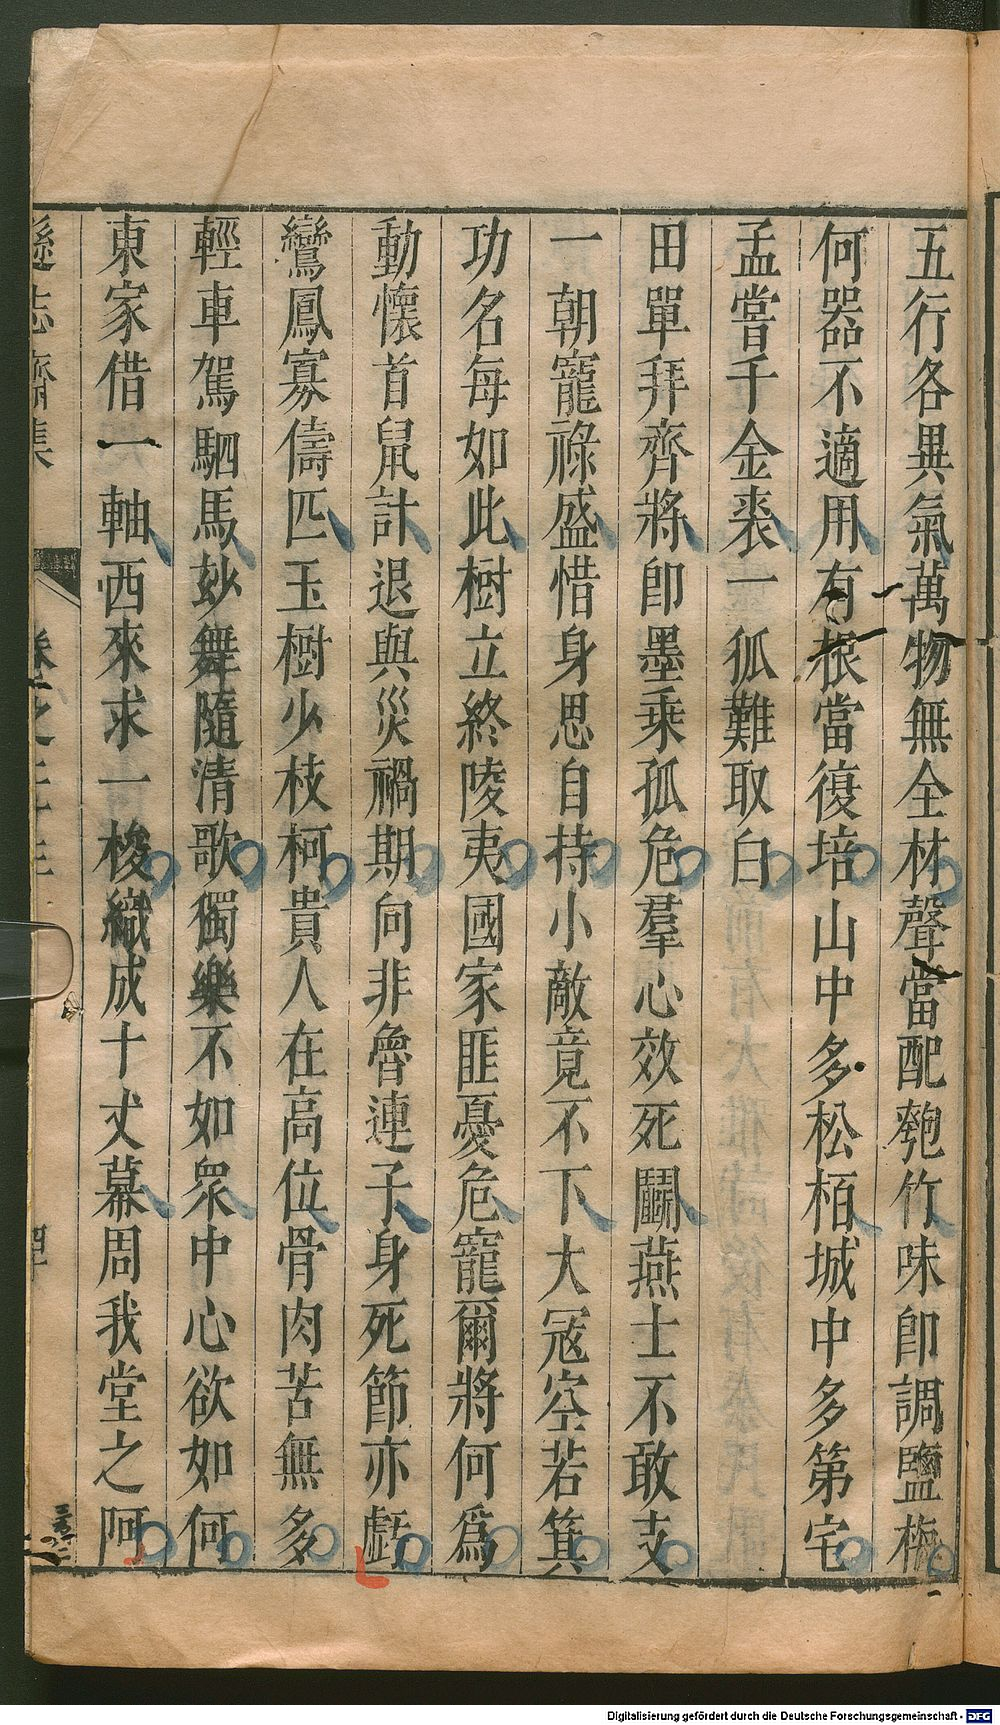 五行各異氣萬物無全材聲當配匏竹味卽調鹽梅
何器不適用有根當復培山中多松栢城中多第宅
孟嘗千金裘一狐難取白
田單拜齊將卽墨乘孤危羣心效死鬭燕士不敢支
一朝寵祿盛惜身思自持小敵竟不下大冦空若箕
功名每如此樹立終陵夷國家匪憂危寵爾將何爲
動懷首鼠計退與災禍期向非魯連子身死節亦虧
鸞鳳寡儔匹玉樹少枝柯貴人在高位骨肉苦無多
輕車駕駟馬妙舞隨清歌獨樂不如衆中心欲如何
東家借一軸西來求一梭織成十丈幕周我堂之阿
遜志齋集 卷之二十三 四
Digitalisierung gefördert durch die Deutsche Forschungsgemeinschaft - DFG